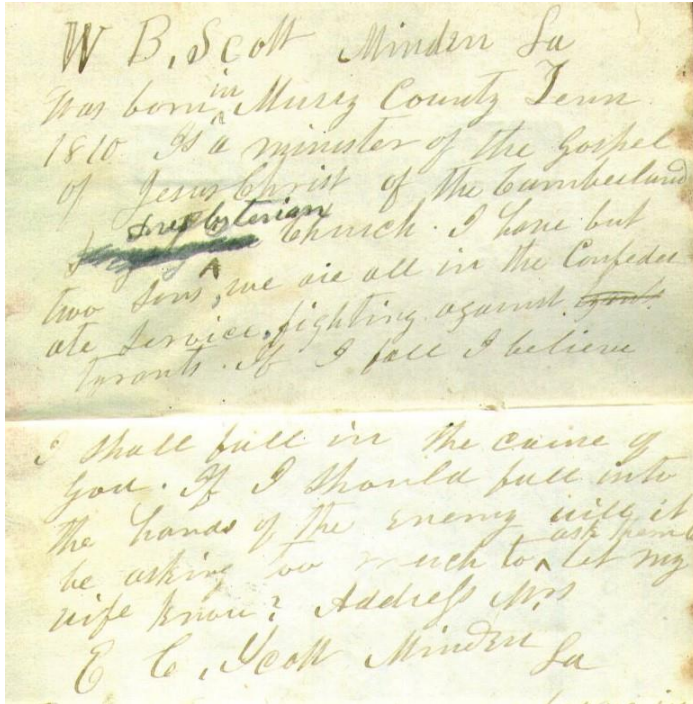 W B, Scott Minden La
Was born in Murey County Tenn
1810. Is a minister of the Gospel
of Jesus Christ of the Cumberland
Presbyterian Church. I have but
two sons, we are all in the Confeder-
ate Service, fighting against
tyrants. If I fall I believe
I shall fall in the cause of
God. If I should fall into
the hands of the enemy will it
be asking too much to ask them to let my
wife know? Address Mrs
E C, Scott Minden La